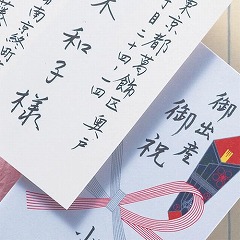 東京都葛飾区奥戸
丁目二十四ー四
木
和子様
南京終町
御出産
御祝